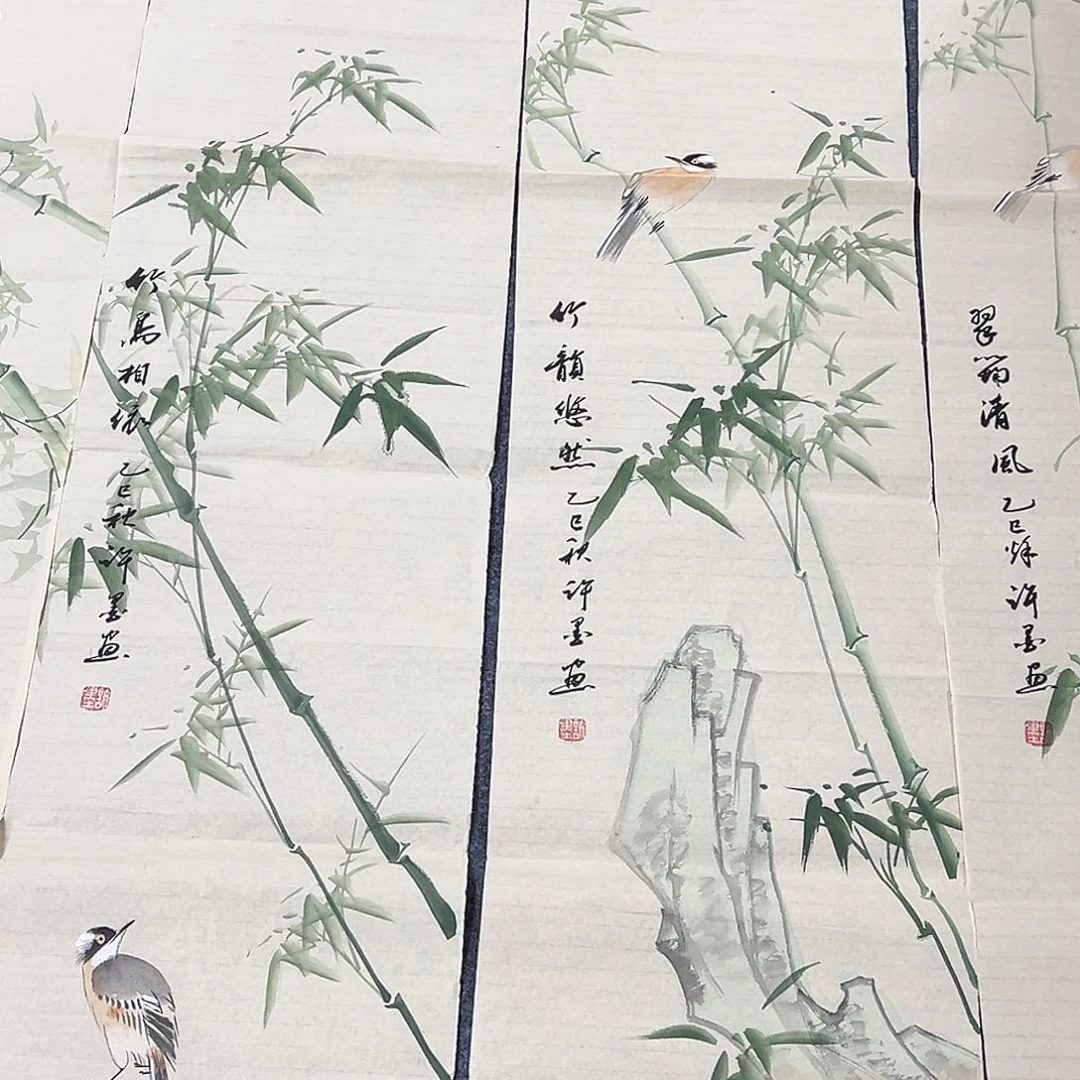 竹鳥相依 乙巳秋許墨画
許墨
竹韻悠然 乙巳秋許墨画
許墨
翠筠清風 乙巳秋許墨画
許墨